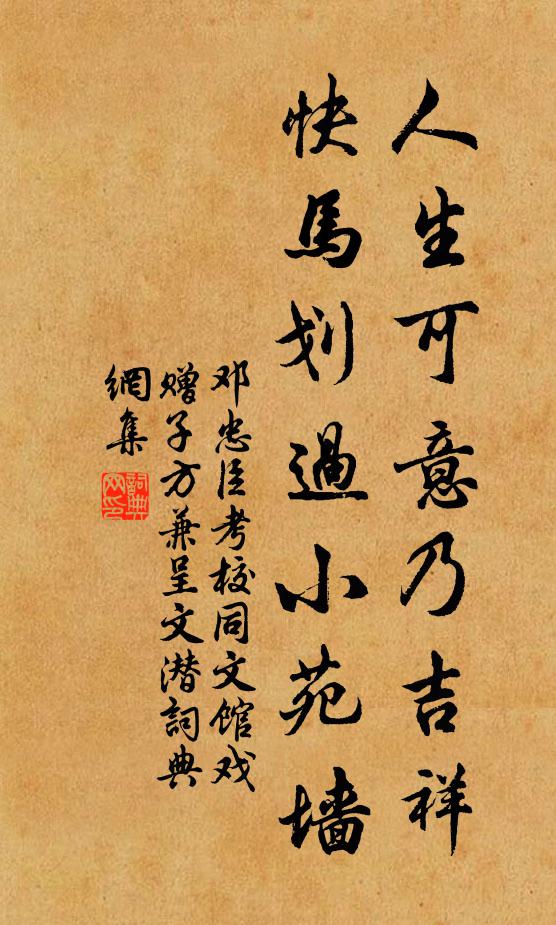 人生可意乃吉祥
快馬划過小苑墻
邓忠臣考校同文馆戏
赠子方兼呈文潜詞典
網集
詞典网印